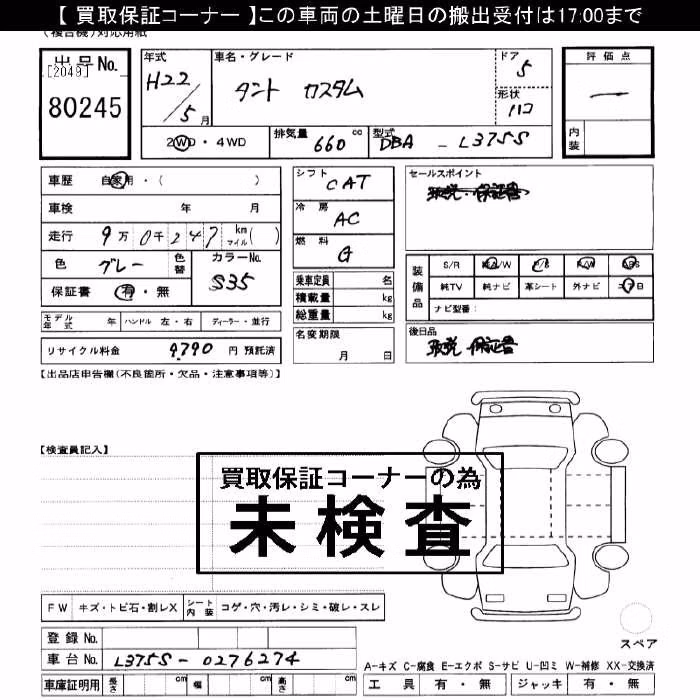 【 買取保証コーナー 】この車両の土曜日の搬出受付は17:00まで
(複合機)対応用紙
出品No.
[2049]
80245
年式
H22/5月
車名・グレード
タント カスタム
ドア
5
形状
ハコ
評価点
内装
2WD・4WD
排気量 660 cc
型式 DBA - L375S
車歴 自家用・( )
車検 年 月
走行 9万0千247 km マイル( )
色 グレー
色替
カラーNo.
S35
保証書 有・無
モデル年式 年 ハンドル 左・右 ディーラー・並行
リサイクル料金 9,790 円 預託済
シフト CAT
冷房 AC
燃料 G
乗車定員 名
積載量 kg
総重量 kg
名変期限
月 日
セールスポイント
取説・保証書
装備品
S/R 純A/W P/S P/W ABS
純TV 純ナビ 革シート 外ナビ エアB
ナビ型番:
後日品
取説 保証書
【出品店申告欄(不良箇所・欠品・注意事項等)】
【検査員記入】
買取保証コーナーの為
未検査
FW キズ・トビ石・割レX シート内装 コゲ・穴・汚レ・シミ・破レ・スレ
登録No.
車台No. L375S-0276274
車庫証明用 長さ cm 幅 cm 高さ cm
スペア
A-キズ C-腐食 E-エクボ S-サビ U-凹ミ W-補修 XX-交換済
工具 有・無 ジャッキ 有・無